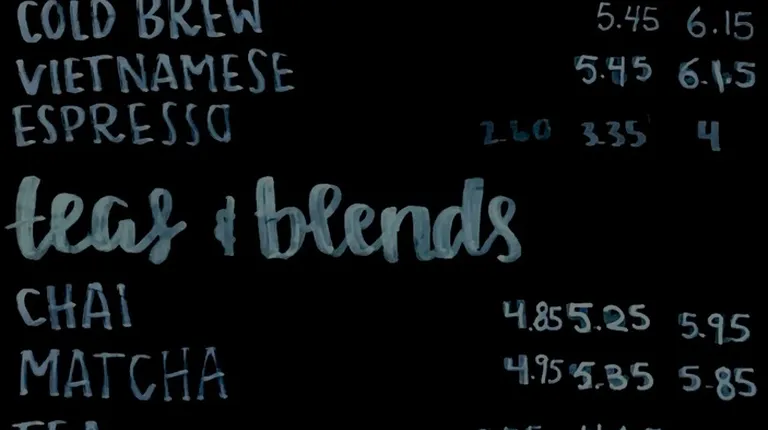 COLD BREW 5.45 6.15
VIETNAMESE 5.45 6.15
ESPRESSO 2.60 3.35 4
teas & blends
CHAI 4.85 5.25 5.95
MATCHA 4.95 5.35 5.85
TEA